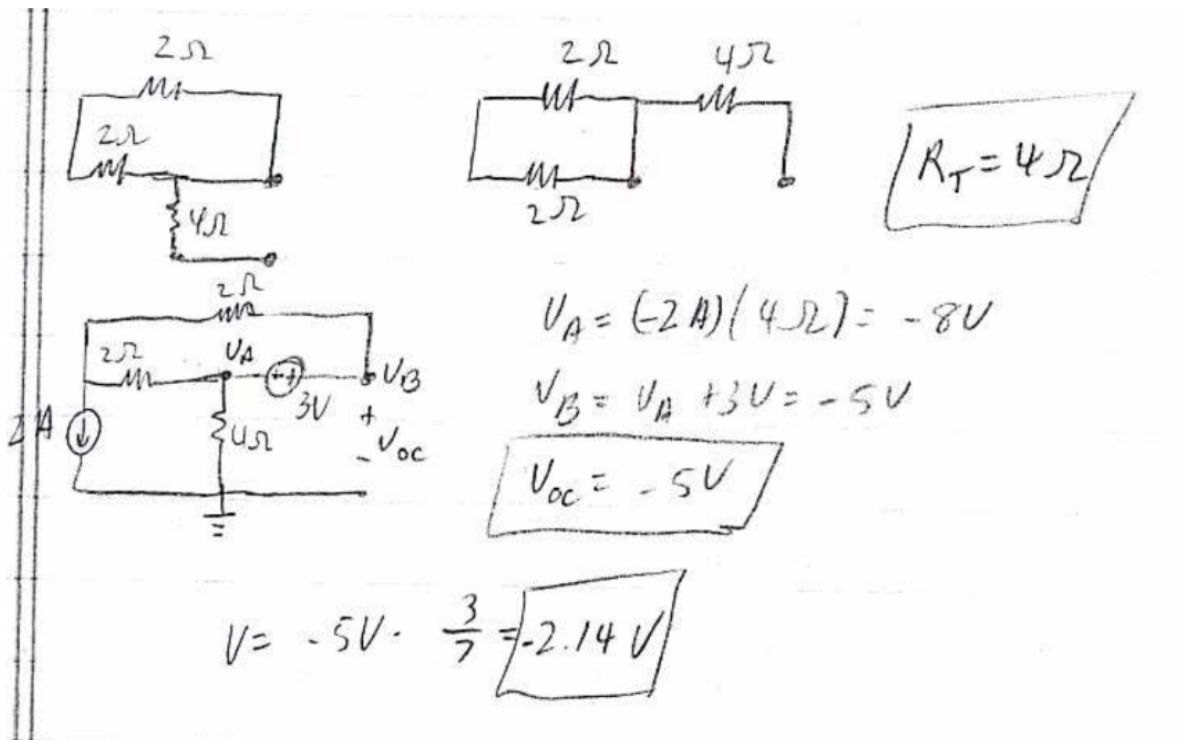 2Ω
2Ω
4Ω
2Ω 4Ω
2Ω
R_T = 4Ω
2Ω
2Ω V_A
- + 3V V_B
2A 4Ω + V_oc -
V_A = (-2A)(4Ω) = -8V
V_B = V_A + 3V = -5V
V_oc = -5V
V = -5V · 3/7 = -2.14 V